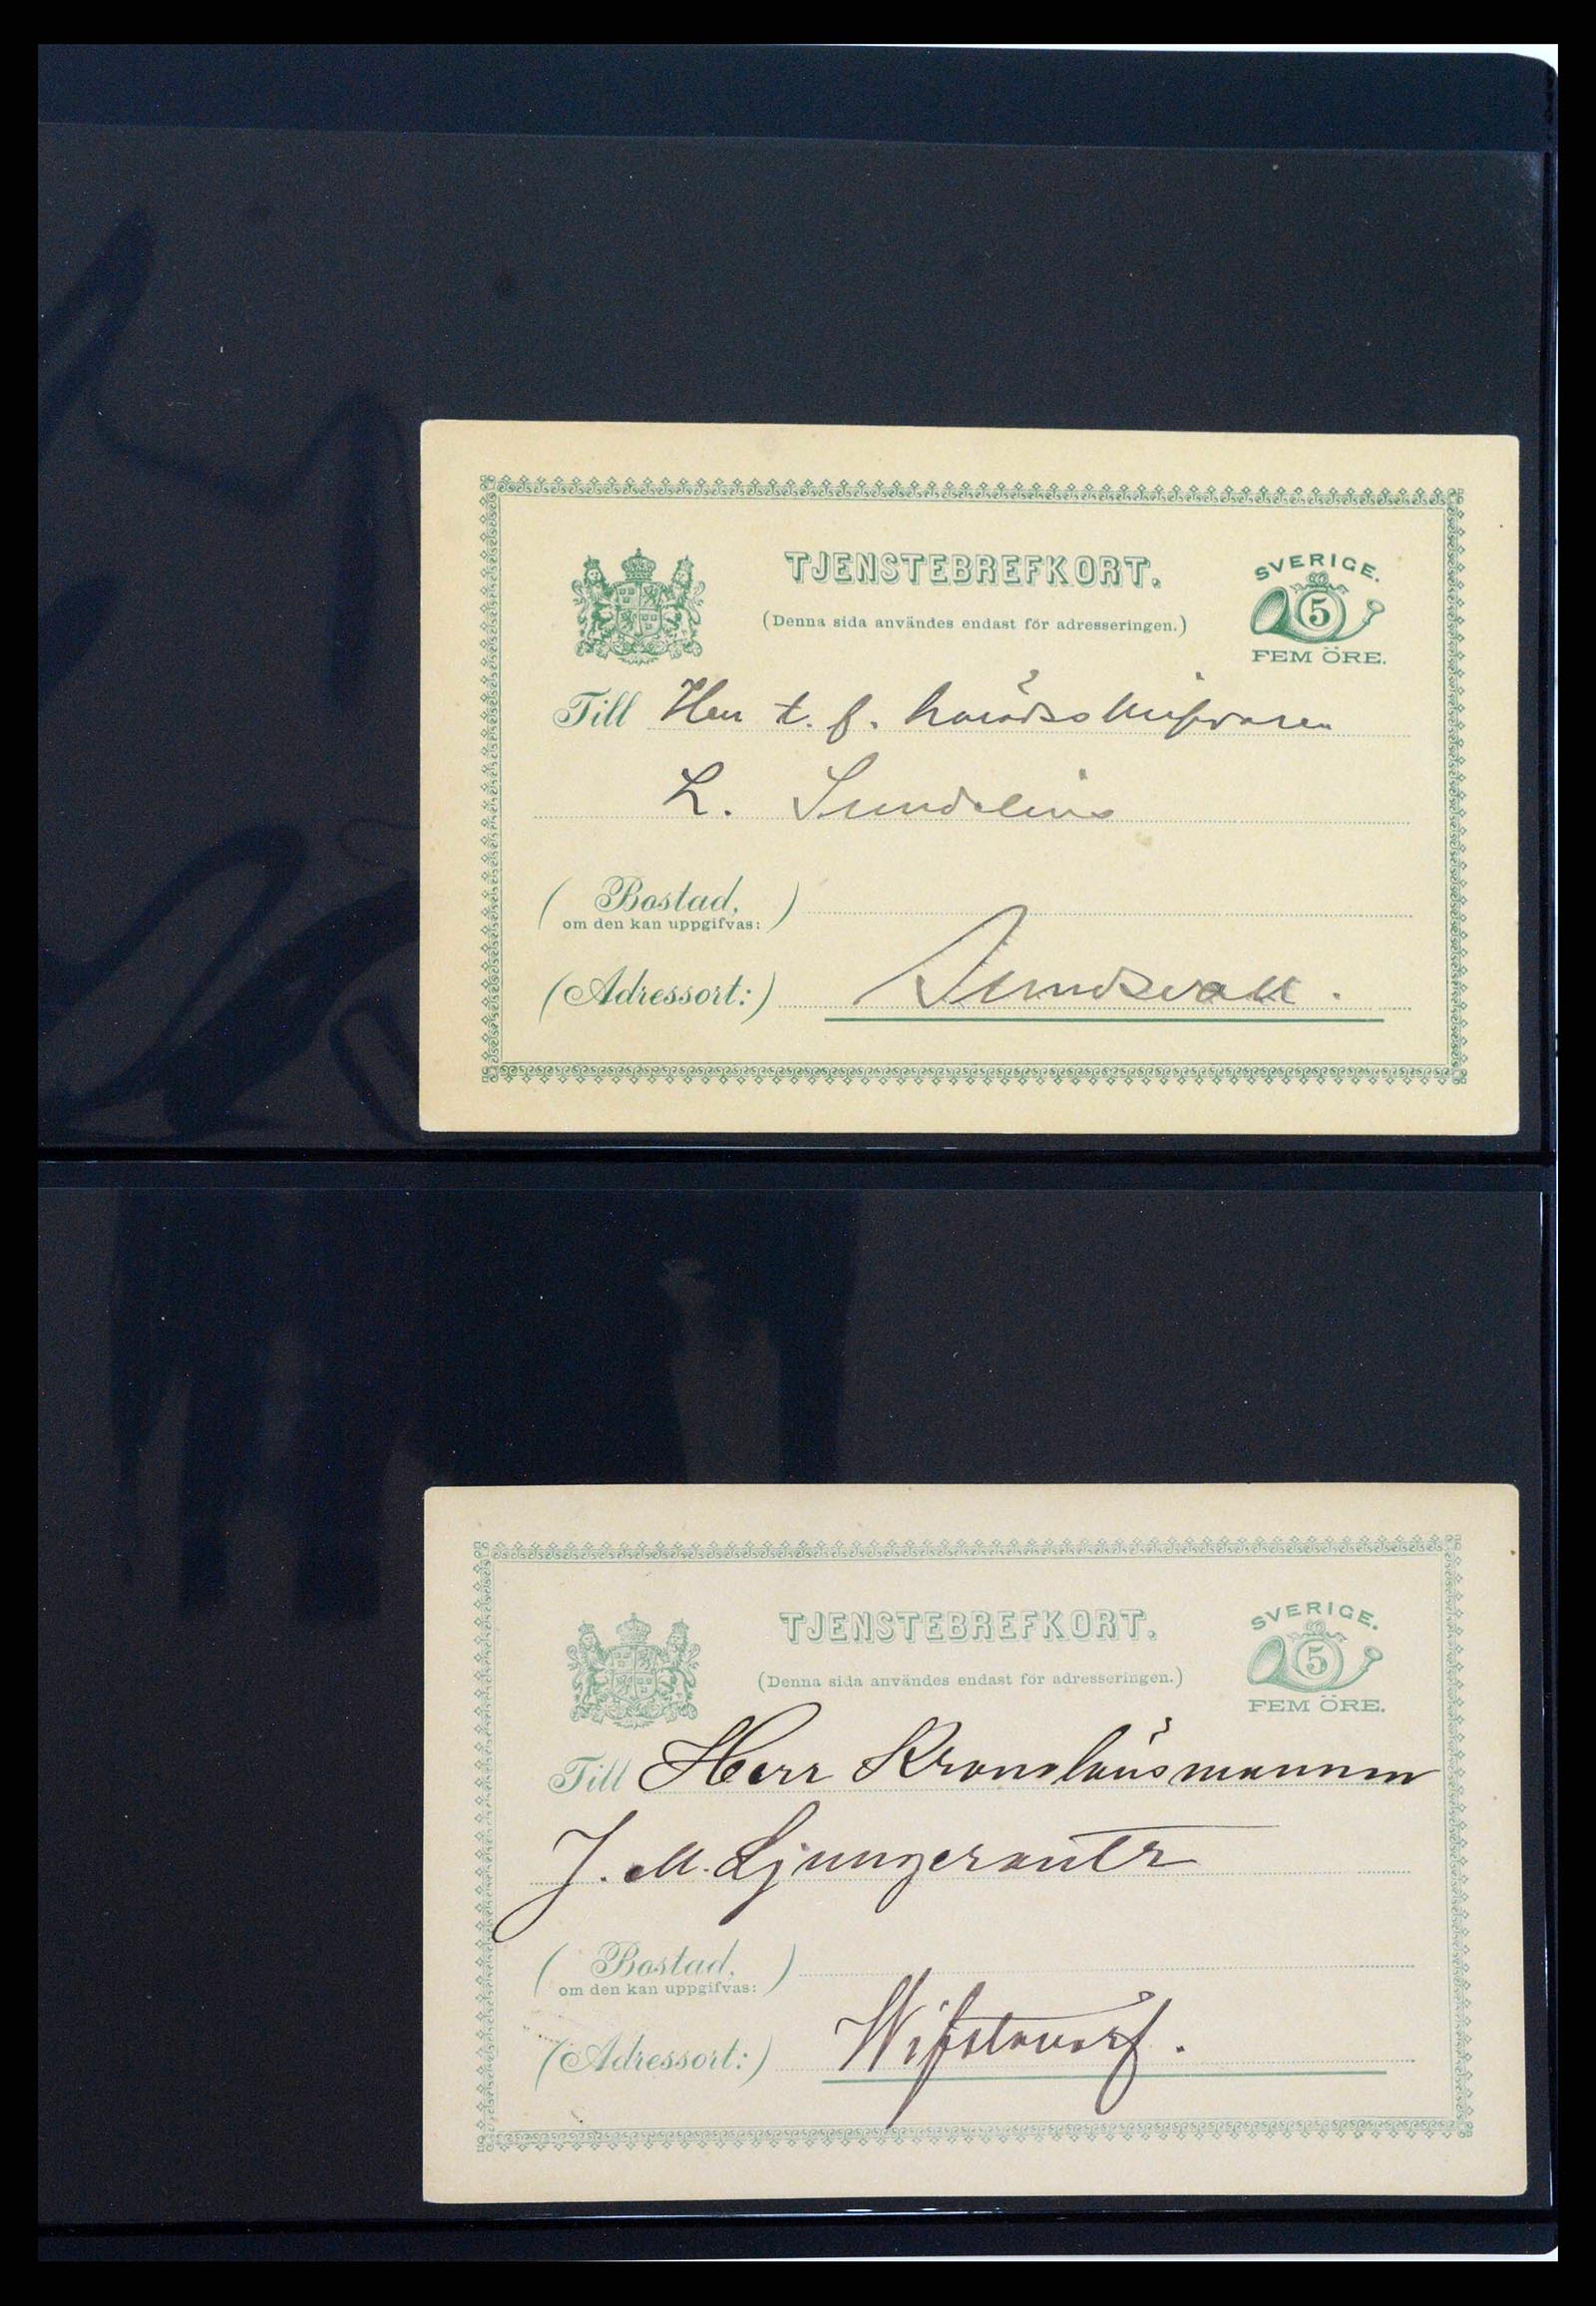 TJENSTEBREFKORT.
(Denna sida användes endast för adresseringen.)
SVERIGE.
5
FEM ÖRE.
Till Herr t. f. häradsskrifvaren
L. Sundelius
(Bostad,
om den kan uppgifvas:)
(Adressort:) Sundsvall.
TJENSTEBREFKORT.
(Denna sida användes endast för adresseringen.)
SVERIGE.
5
FEM ÖRE.
Till Herr Kronolänsmannen
J. M. Ljungerantz
(Bostad,
om den kan uppgifvas:)
(Adressort:) Wifstavarf.